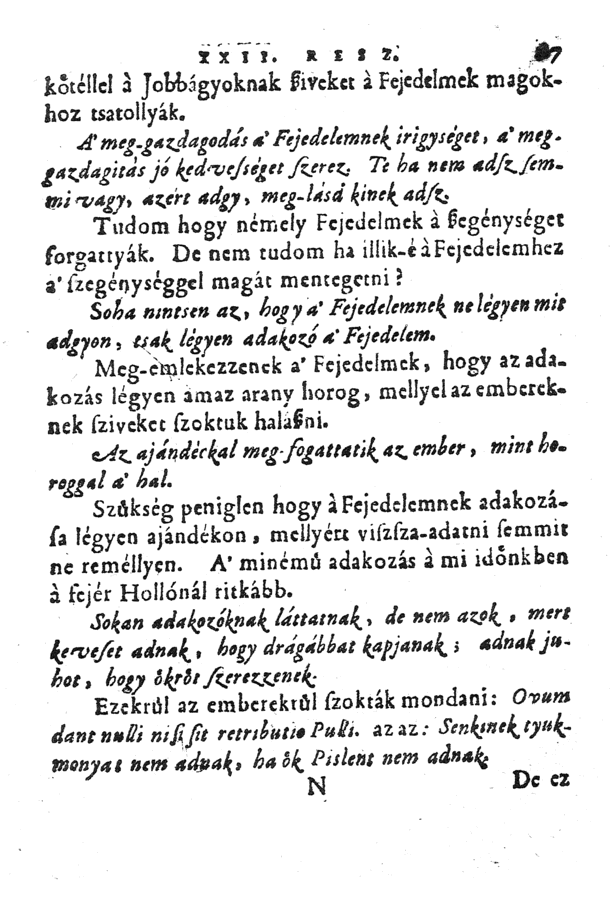 XXII. RESZ. 97
kötéllel à Jobbágyoknak ßiveket à Fejedelmek magok-
hoz tsatollyák.
A' meg-gazdagodás a' Fejedelemnek irigységet, a' meg-
gazdagitás jó kedveſséget ſzerez. Te ha nem adſz ſem-
mi vagy, azért adgy, meg-lásd kinek adſz.
Tudom hogy némely Fejedelmek à ßegénységet
forgattyák. De nem tudom ha illik-é à Fejedelemhez
a' ſzegénységgel magát mentegetni?
Soha nintsen az, hogy a' Fejedelemnek ne légyen mit
adgyon, tsak légyen adakozó a' Fejedelem.
Meg-emlekezzenek a' Fejedelmek, hogy az ada-
kozás légyen amaz arany horog, mellyel az emberek-
nek ſziveket ſzoktuk haláßni.
Az ajándéckal meg-fogattatik az ember, mint ho-
roggal a' hal.
Szůkség peniglen hogy à Fejedelemnek adakozá-
ſa légyen ajándékon, mellyért viſzſza-adatni ſemmit
ne reméllyen. A' minémů adakozás à mi idönkben
à fejér Hollónál ritkább.
Sokan adakozóknak láttatnak, de nem azok, mert
keveſet adnak, hogy drágábbat kapjanak; adnak ju-
hot, hogy ökröt ſzerezzenek.
Ezekrůl az emberekrůl ſzokták mondani: Ovum
dant nulli niſi ſit retributio Pulli. az az: Senkinek tyuk-
monyat nem adnak, ha ök Pislent nem adnak.
N De ez